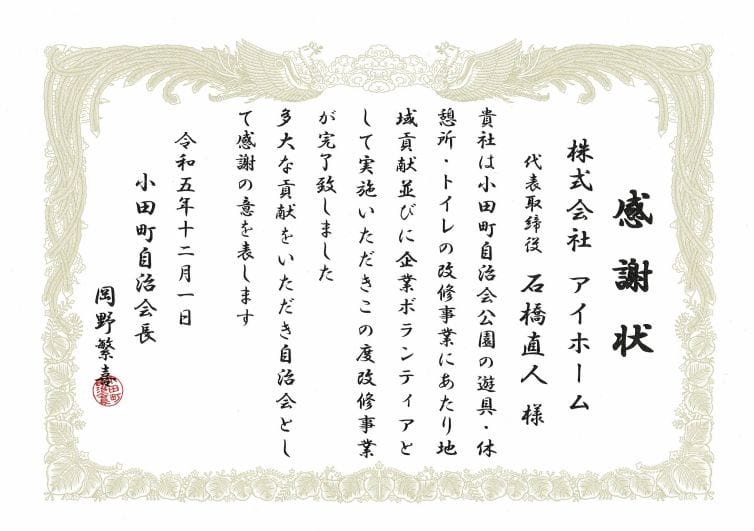 感謝状
株式会社 アイホーム
代表取締役 石橋直人 様
貴社は小田町自治会公園の遊具・休
憩所・トイレの改修事業にあたり地
域貢献並びに企業ボランティアと
して実施いただきこの度改修事業
が完了致しました
多大な貢献をいただき自治会とし
て感謝の意を表します
令和五年十二月一日
小田町自治会長
岡野繁喜